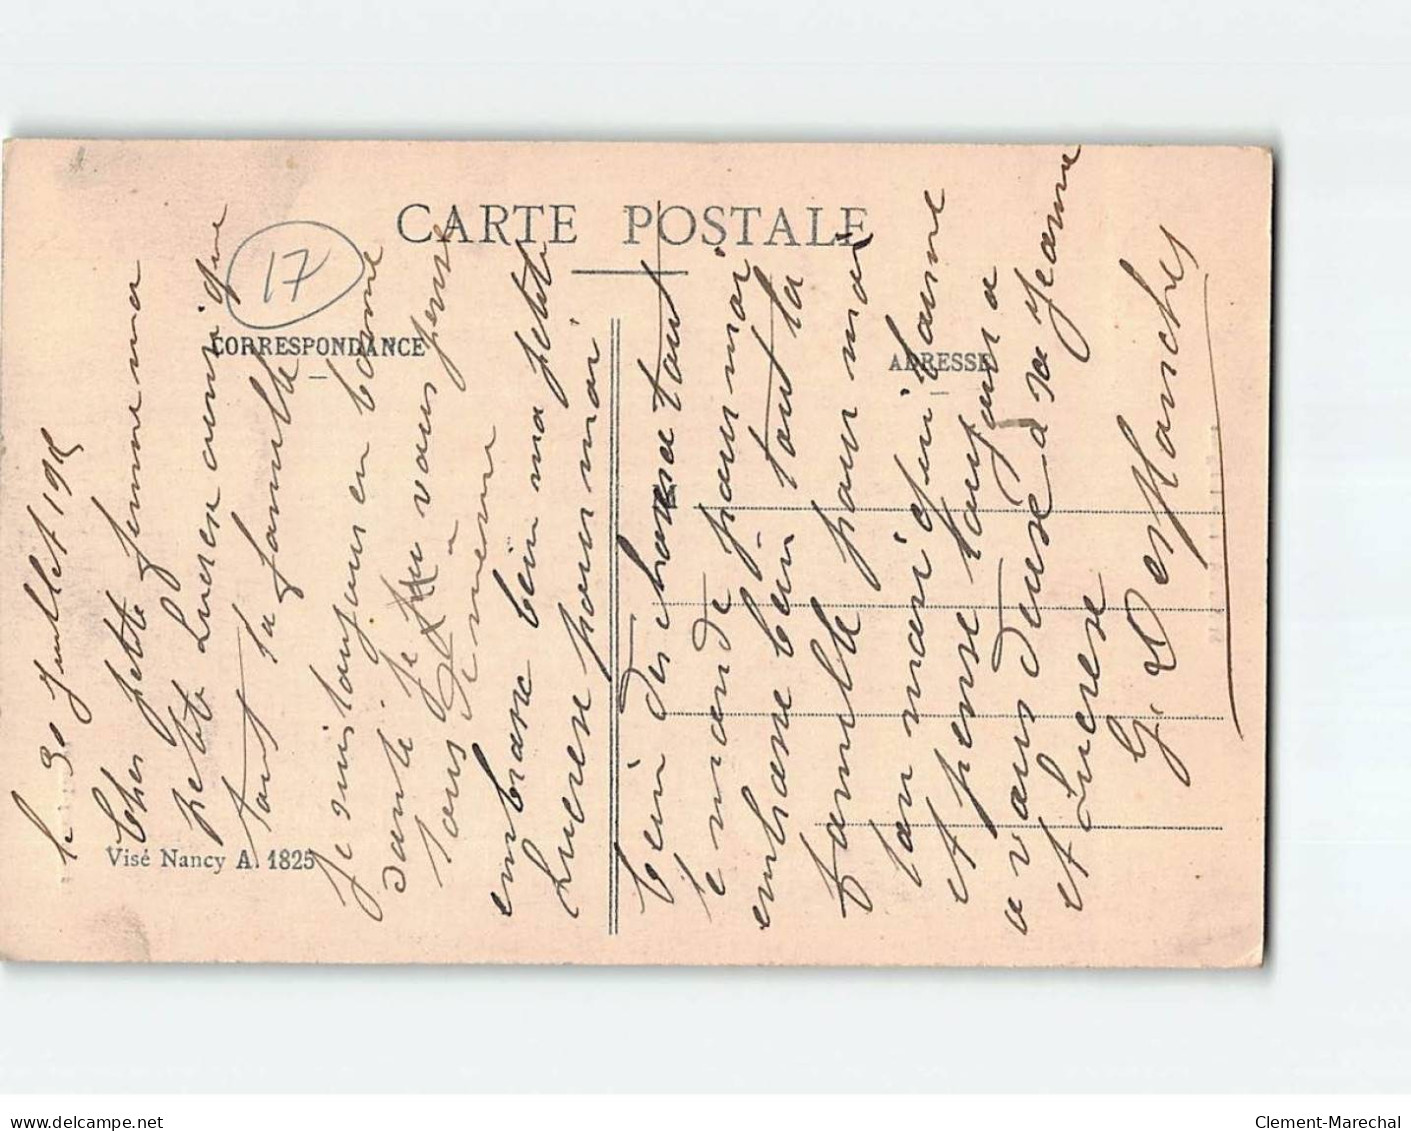 CARTE POSTALE
17
CORRESPONDANCE
ADRESSE
Visé Nancy A. 1825
le 30 Juillet 1915
Cher petite femme ma
petite Lucese ainsi que
tout la famille
Je suis toujours en bonne
santé je vous pense
tous de meme
embrasse bien ma petite
Lucese pour moi
bien des chose tout
le monde pour moi
embrasse bien tout la
famille pour moi
ton mari qui taime
et pense toujours a
a vous deuse a sa Jeanne
et Lucese
G. Desplanches
delcampe.net
Clement-Marechal